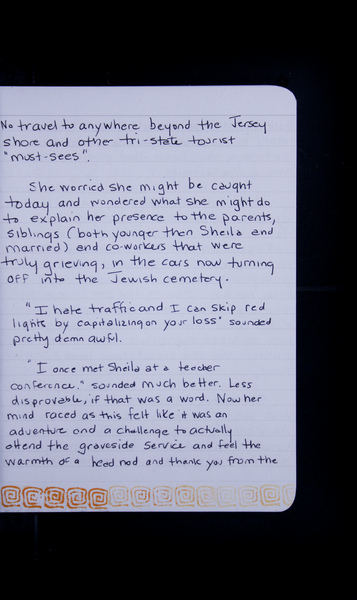 No travel to anywhere beyond the Jersey
shore and other tri-state tourist
"must-sees".
She worried she might be caught
today and wondered what she might do
to explain her presence to the parents,
siblings (both younger then Sheila and
married) and co-workers that were
truly grieving, in the cars now turning
off into the Jewish cemetery.
"I hate traffic and I can skip red
lights by capitalizing on your loss" sounded
pretty damn awful.
"I once met Sheila at a teacher
conference." sounded much better. Less
disprovable, if that was a word. Now her
mind raced as this felt like it was an
adventure and a challenge to actually
attend the graveside service and feel the
warmth of a head nod and thank you from the